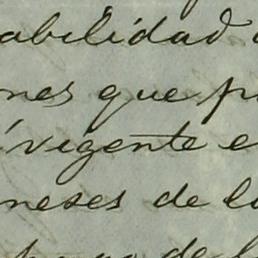 abilidad
nes que p
vigente e
neses de la